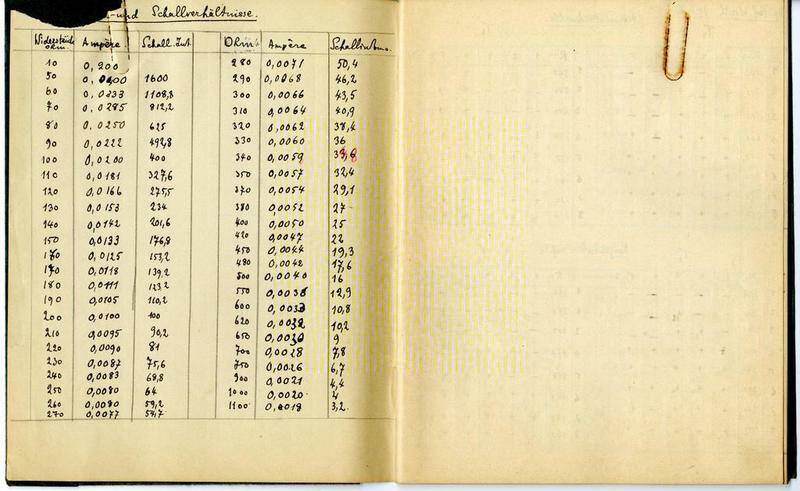 -und Schallverhältnisse.
Widerstand Ohm. Ampère Schall.Int. Ohm Ampère Schallintens.
10 0,200 280 0,0071 50,4
50 0,0400 1600 290 0,0068 46,2
60 0,0333 1108,8 300 0,0066 43,5
70 0,0285 812,2 310 0,0064 40,9
80 0,0250 625 320 0,0062 38,4
90 0,0222 492,8 330 0,0060 36
100 0,0200 400 340 0,0059
110 0,0181 327,6 350 0,0057 32,4
120 0,0166 275,5 370 0,0054 29,1
130 0,0153 234 380 0,0052 27
140 0,0142 201,6 400 0,0050 25
150 0,0133 176,8 420 0,0047 22
160 0,0125 153,2 450 0,0044 19,3
170 0,0118 139,2 480 0,0042 17,6
180 0,0111 123,2 500 0,0040 16
190 0,0105 110,2 550 0,0036 12,9
200 0,0100 100 600 0,0033 10,8
210 0,0095 90,2 620 0,0032 10,2
220 0,0090 81 650 0,0030 9
230 0,0087 75,6 700 0,0028 7,8
240 0,0083 68,8 750 0,0026 6,7
250 0,0080 64 900 0,0021 4,4
260 0,0080 59,2 1000 0,0020 4
270 0,0077 1100 0,0018 3,2